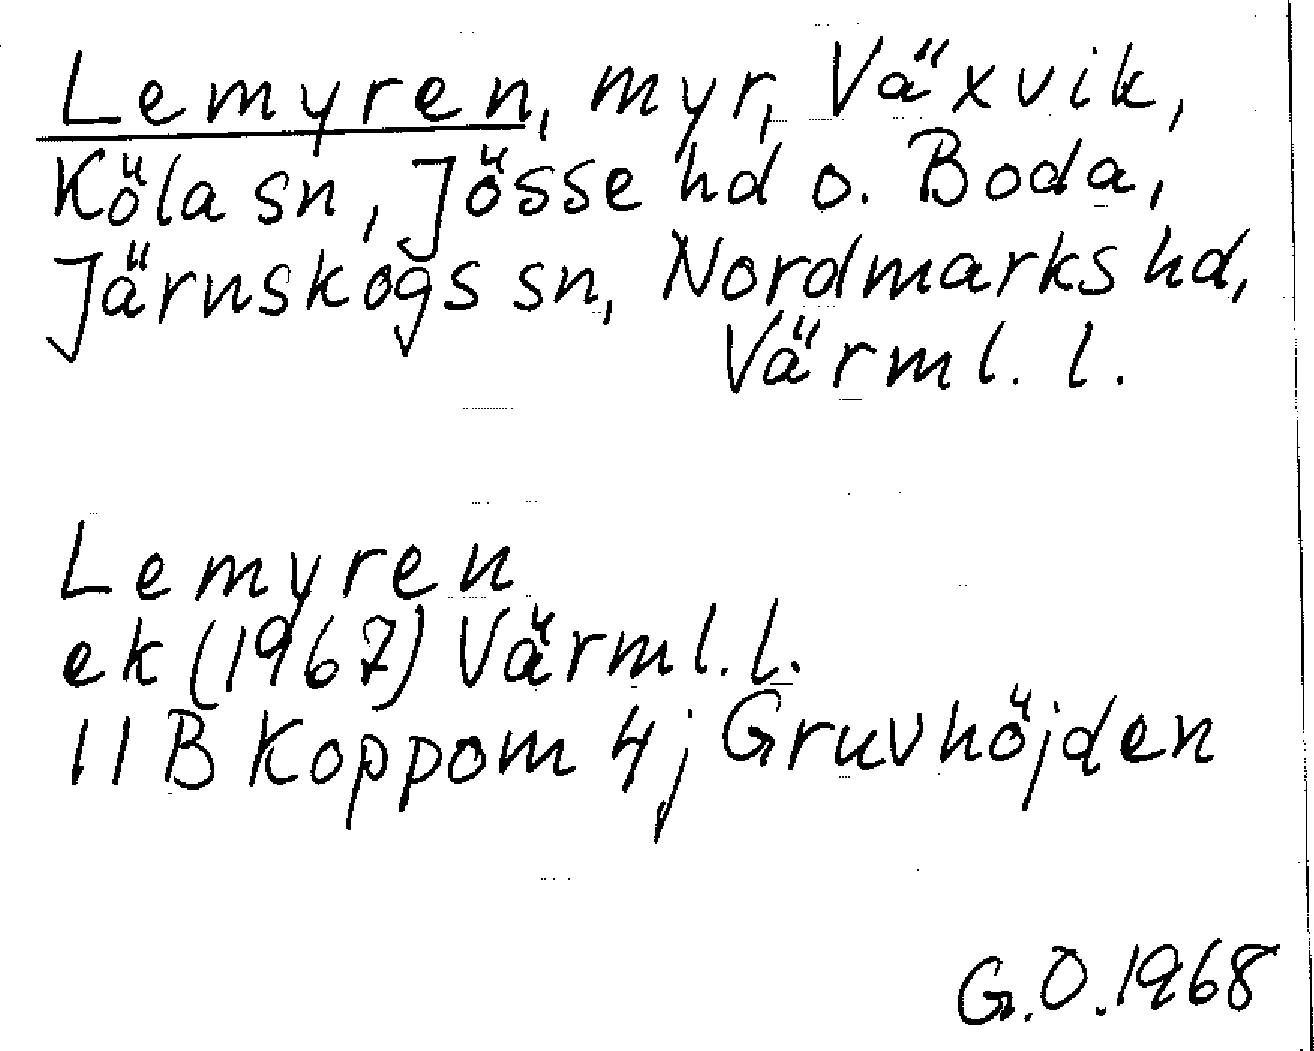 Lemyren, myr, Växvik,
Köla sn, Jösse hd o. Boda,
Järnskogs sn, Nordmarks hd,
Värml. l.
Lemyren
ek (1967) Värml. l.
11 B Koppom 4j Gruvhöjden
G.O. 1968